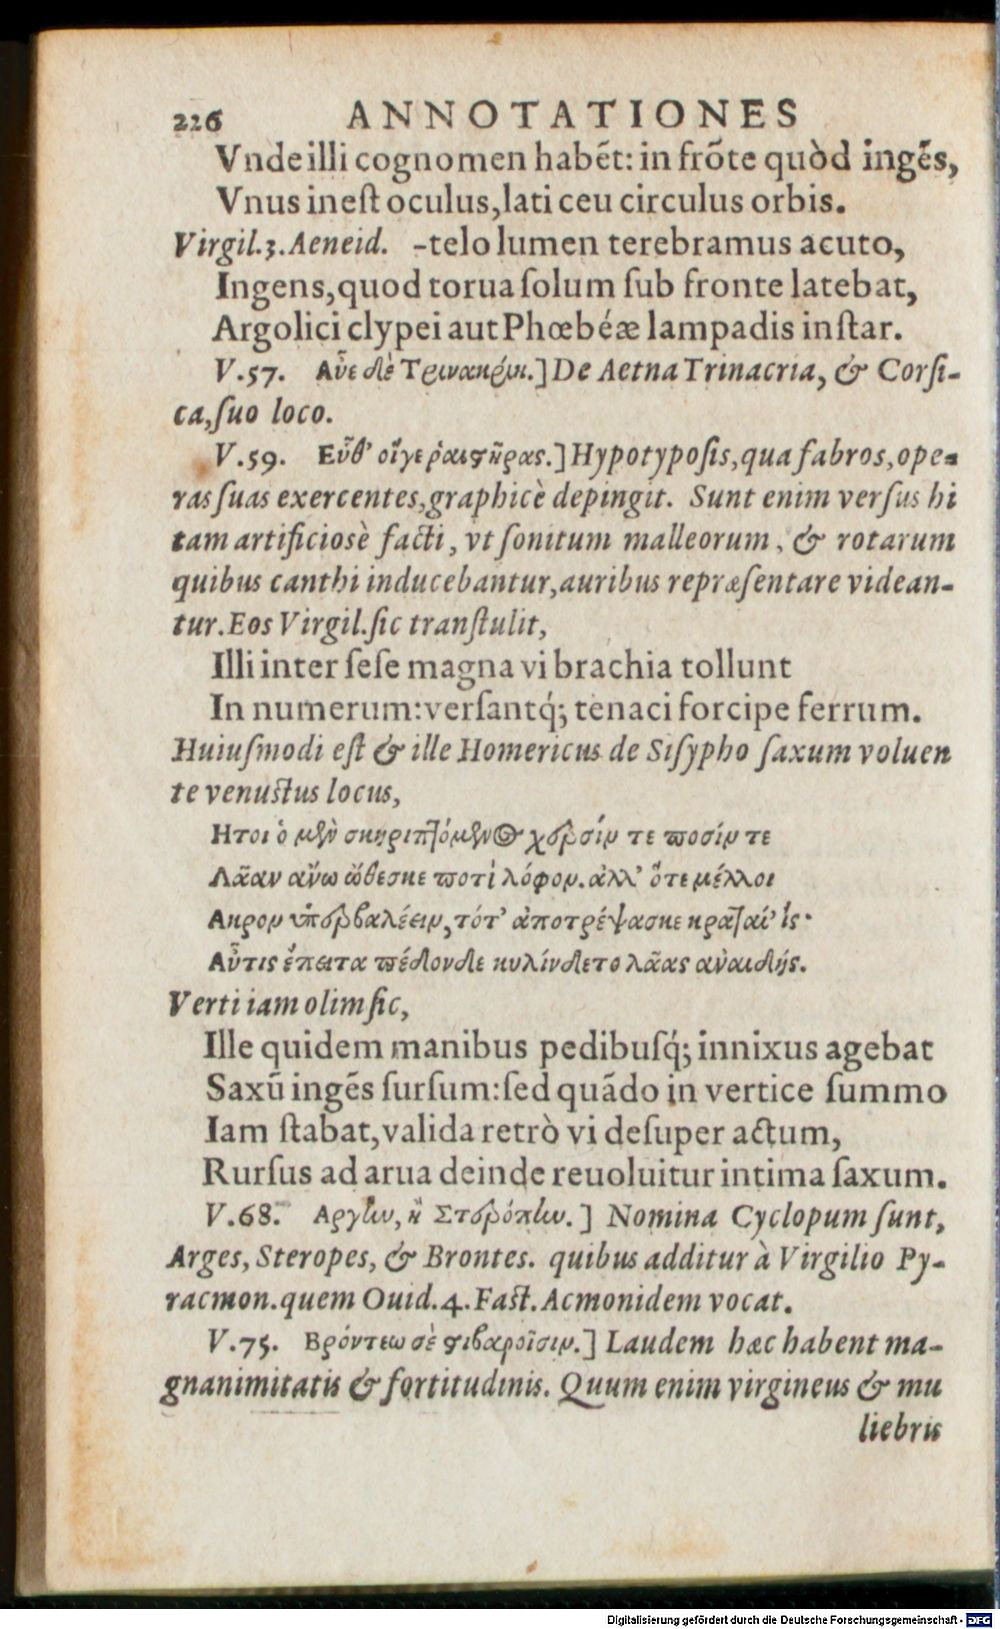 226 ANNOTATIONES
Vnde illi cognomen habēt: in frōte quòd ingēs,
Vnus inest oculus, lati ceu circulus orbis.
Virgil.3.Aeneid. -telo lumen terebramus acuto,
Ingens, quod torua solum sub fronte latebat,
Argolici clypei aut Phœbéæ lampadis instar.
V.57. Αὖε δὲ Τρινακρίη.] De Aetna Trinacria, & Corsi-
ca, suo loco.
V.59. Εὖθ' οἵγε ῥαιστῆρας.] Hypotyposis, qua fabros, ope-
ras suas exercentes, graphicè depingit. Sunt enim versus hi
tam artificiosè facti, vt sonitum malleorum, & rotarum
quibus canthi inducebantur, auribus repræsentare videan-
tur. Eos Virgil. sic transtulit,
Illi inter sese magna vi brachia tollunt
In numerum: versantq́; tenaci forcipe ferrum.
Huiusmodi est & ille Homericus de Sisypho saxum voluen
te venustus locus,
Ητοι ὁ μὲν σκηριπτόμενος χερσίν τε ποσίν τε
Λᾶαν ἄνω ὤθεσκε ποτὶ λόφον. ἀλλ' ὅτε μέλλοι
Ακρον ὑπερβαλέειν, τότ' ἀποτρέψασκε κραταί' ἲς·
Αὖτις ἔπειτα πέδονδε κυλίνδετο λᾶας ἀναιδής.
Verti iam olim sic,
Ille quidem manibus pedibusq́; innixus agebat
Saxū ingēs sursum: sed quādo in vertice summo
Iam stabat, valida retrò vi desuper actum,
Rursus ad arua deinde reuoluitur intima saxum.
V.68. Αργην, ἢ Στερόπην.] Nomina Cyclopum sunt,
Arges, Steropes, & Brontes. quibus additur à Virgilio Py-
racmon. quem Ouid.4.Fast. Acmonidem vocat.
V.75. Βρόντεω σὲ στιβαροῖσιν.] Laudem hæc habent ma-
gnanimitatis & fortitudinis. Quum enim virgineus & mu
liebris
Digitalisierung gefördert durch die Deutsche Forschungsgemeinschaft - DFG